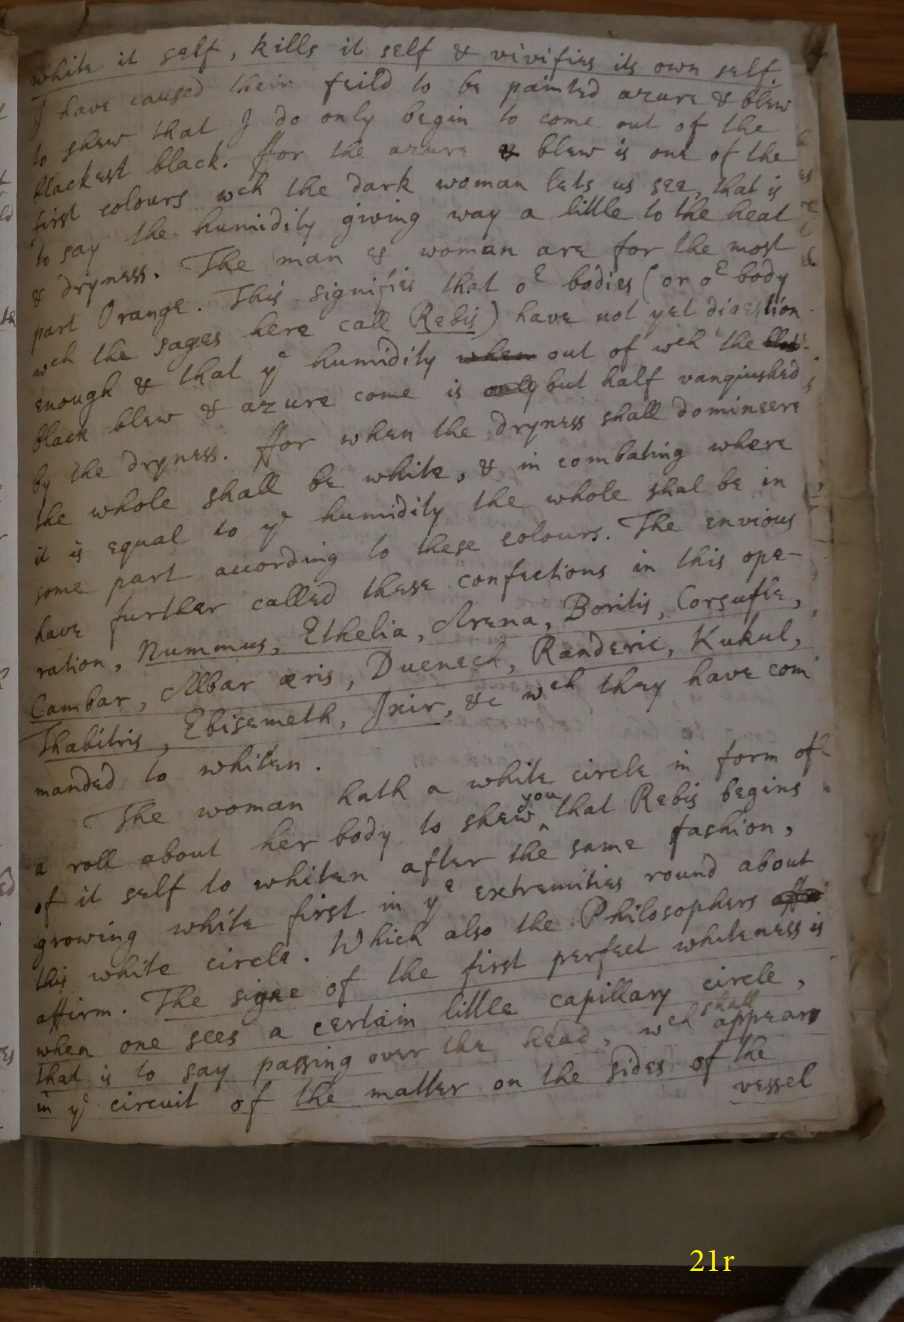 white it self, kills it self & vivifies its own self.
I have caused their feild to be painted azure & blew
to shew that I do only begin to come out of the
blackest black. ffor the azure & blew is one of the
first colours wch the dark woman lets us see, that is
to say the humidity giving way a little to the heat
& dryness. The man & woman are for the most
part Orange. This signifies that oe bodies (or oe body
wch the sages here call Rebis) have not yet digestion
enough & that ye humidity when out of wch the blac
black blew & azure come is only but half vanquished
by the dryness. ffor when the dryness shall domineere
the whole shall be white, & in combating where
it is equal to ye humidity the whole shal be in
some part according to these colours. The envious
have further called these confections in this ope-
ration, Nummus, Ethelia, Arena, Boritis, Corsufle,
Cambar, Albar æris, Duenech, Randeric, Kukul,
Thabitris, Ebisemeth, Ixir, &c wch they have com
manded to whiten.
The woman hath a white circle in form of
a roll about her body to shew you that Rebis begins
of it self to whiten after the same fashion,
growing white first in ye extremities round about
this white circle. Which also the Philosophers
affirm. The signe of the first perfect whiteness is
when one sees a certain little capillary circle,
that is to say passing over the head, wch shall appear
in ye circuit of the matter on the sides of the
vessel
21r